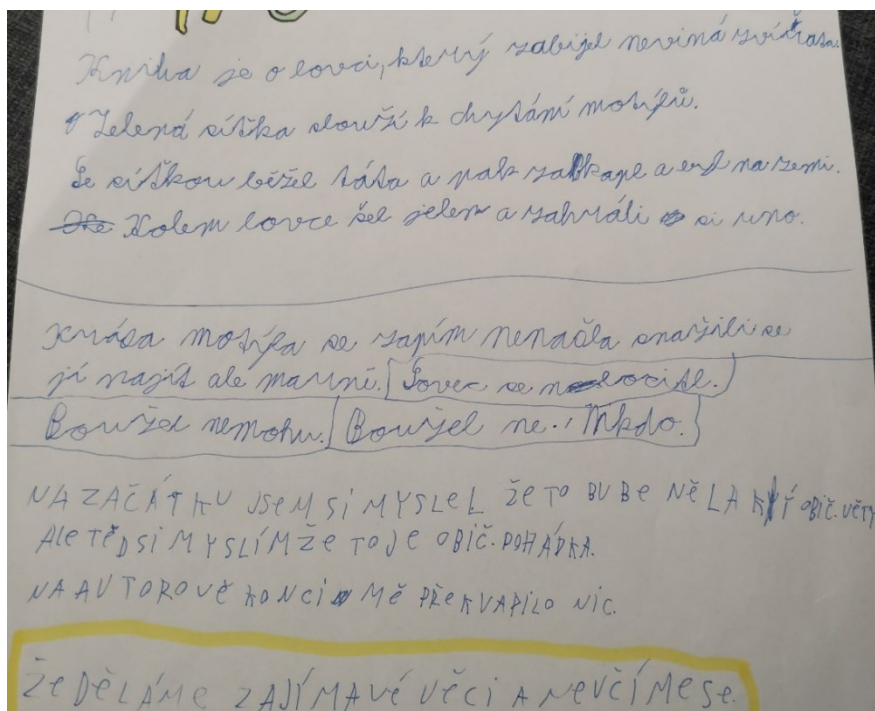 Kniha je o lovci, který zabijel neviná zvířata.
Zelená síťka slouží k chytání motýlů.
Se síťkou běžel táta a pak zakkapl a na zemi.
Kolem lovce šel jelen a zahráli si uno.
Krása motýla se zapím nenašla snažili se
jí najít ale marně. Lovec se
Boužel nemohu. Boužel ne. Nikdo.
NA ZAČÁTKU JSEM SI MYSLEL ŽE TO BUBE NĚLAKÍ OBIČ. VĚTY
ALE TĚD SI MYSLÍM ŽE TO JE OBIČ. POHÁDKA.
NA AUTOROVĚ KONCI MĚ PŘEKVAPILO NIC.
ŽE DĚLÁME ZAJÍMAVÉ VĚCI A NEVČÍME SE.